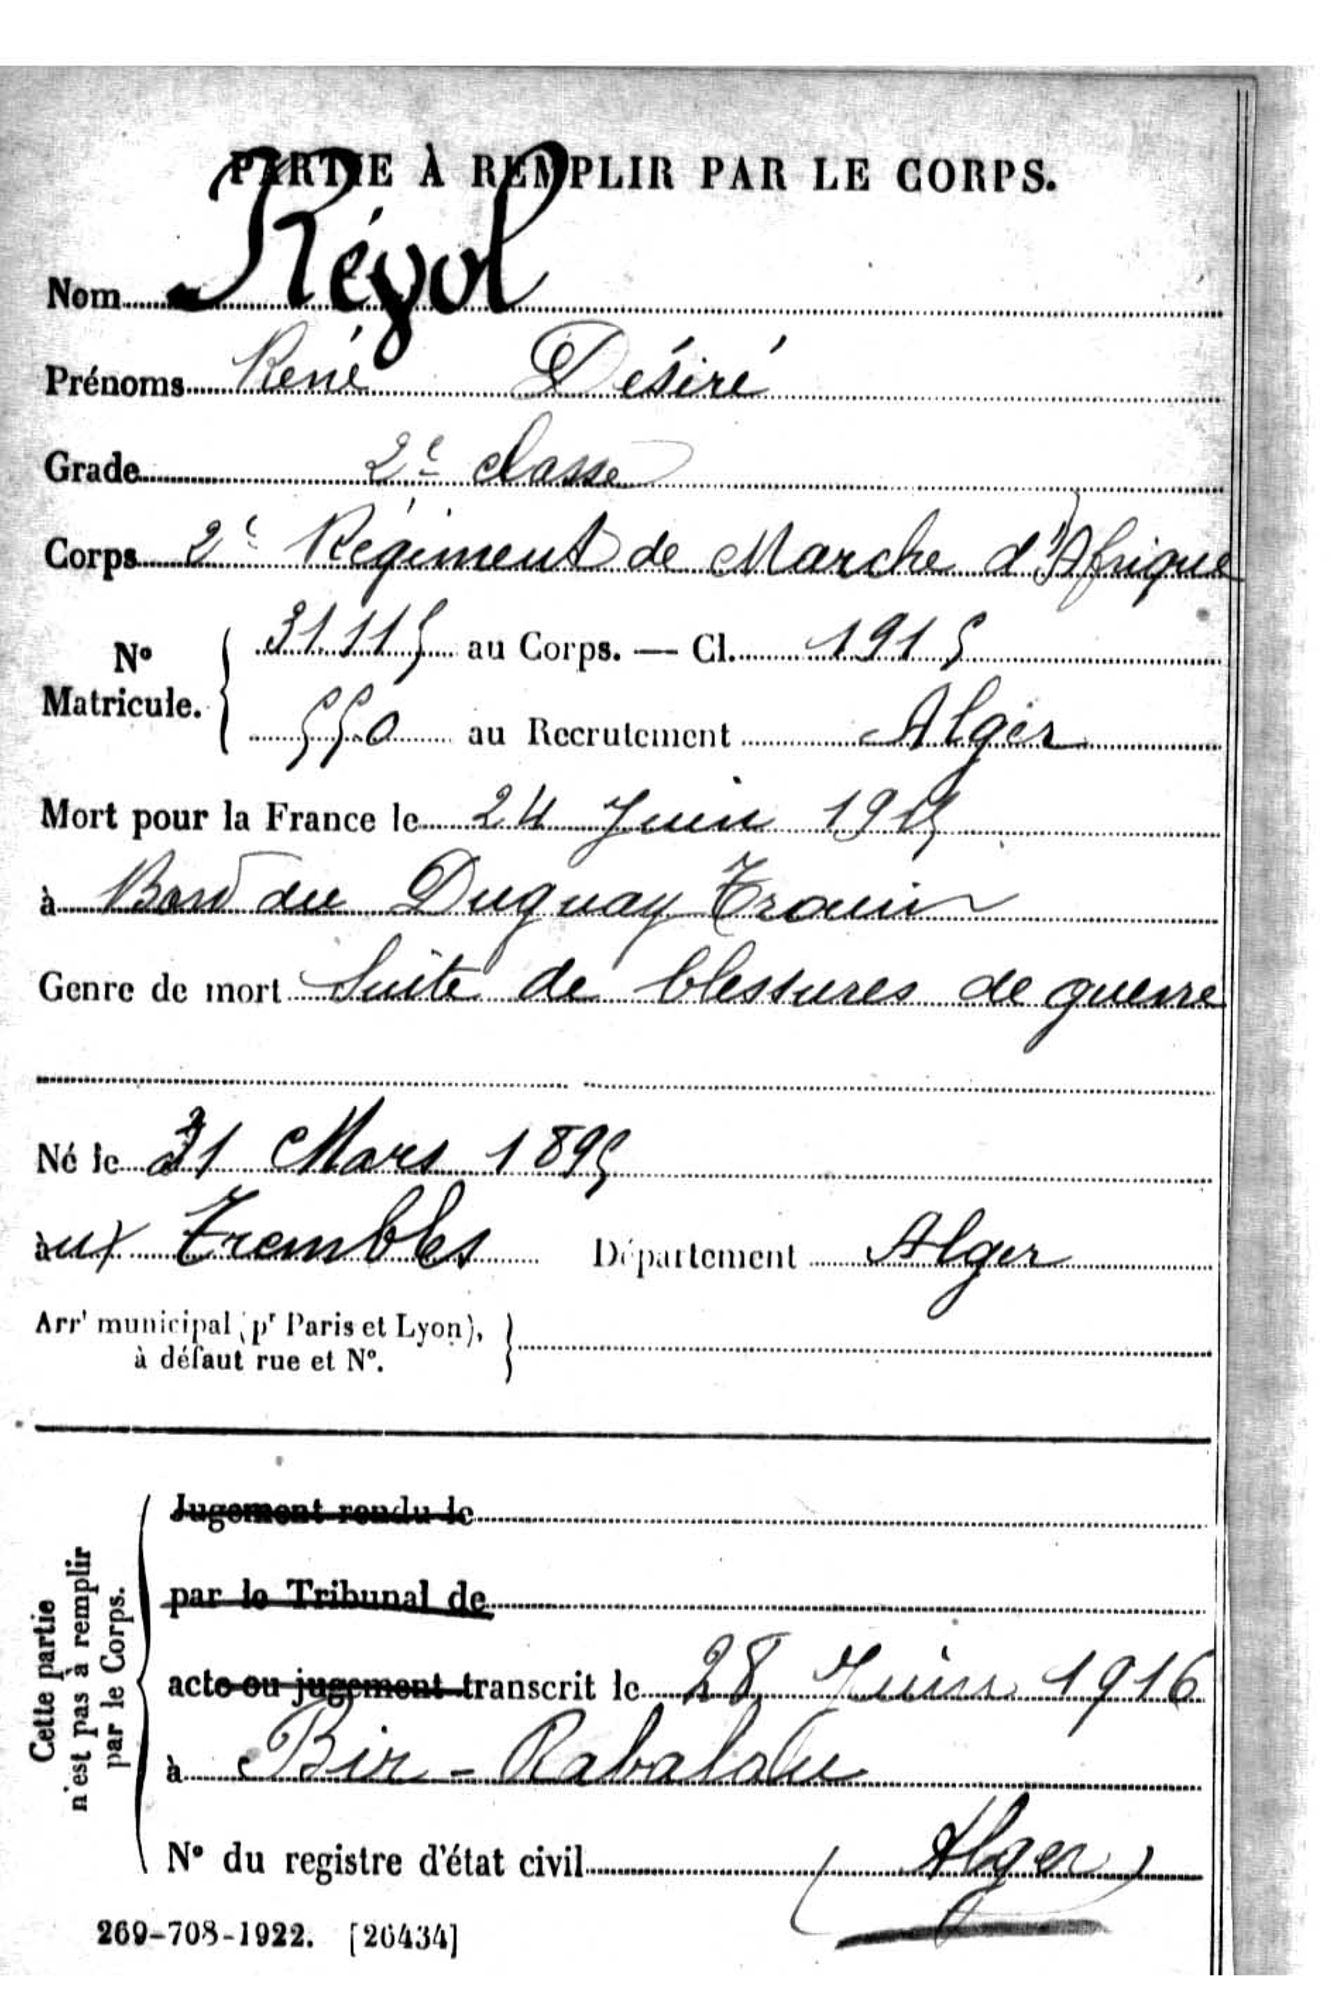 PARTIE À REMPLIR PAR LE CORPS.
Nom Régol
Prénoms René Désiré
Grade 2e classe
Corps 2e Régiment de Marche d'Afrique
No Matricule. { 31.115 au Corps. — Cl. 1915
550 au Recrutement Alger
Mort pour la France le 24 Juin 1915
à Bord du Duguay Trouin
Genre de mort Suite de blessures de guerre
Né le 31 Mars 1895
aux Trembles Département Alger
Arrt municipal (pr Paris et Lyon), à défaut rue et No. }
Cette partie n'est pas à remplir par le Corps.
Jugement rendu le
par le Tribunal de
acte ou jugement transcrit le 28 Juin 1916
à Bir-Rabalou
No du registre d'état civil (Alger)
269-708-1922. [26434]